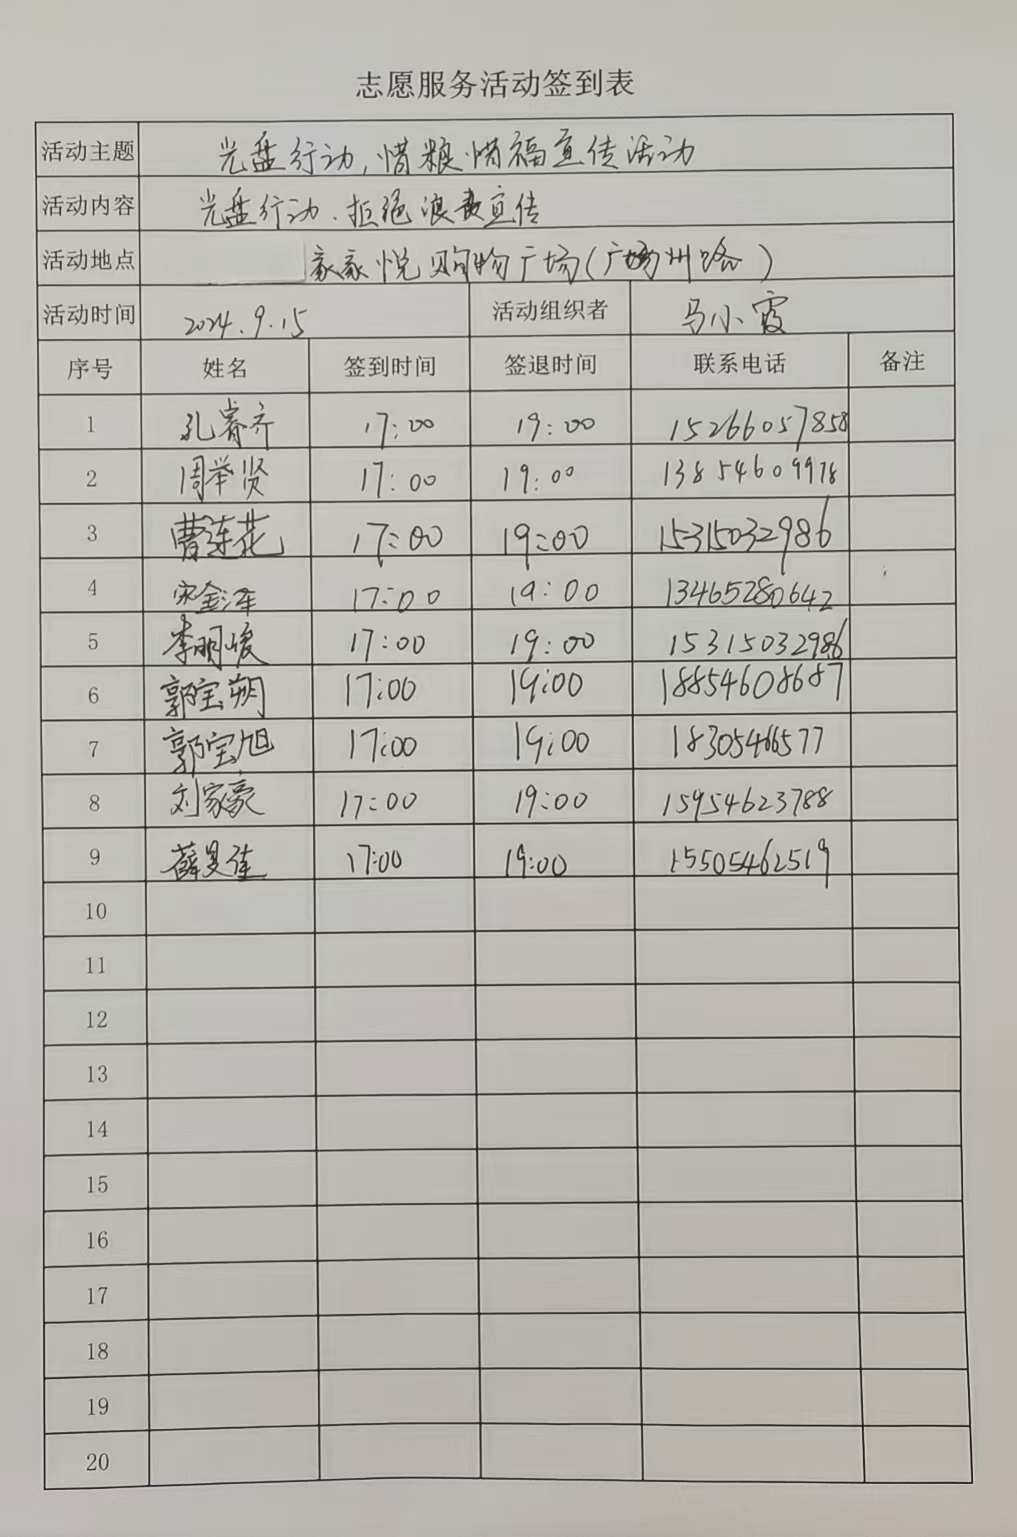 志愿服务活动签到表
活动主题 光盘行动,惜粮惜福宣传活动
活动内容 光盘行动、拒绝浪费宣传
活动地点 家家悦购物广场(广州路)
活动时间 2024.9.15 活动组织者 马小霞
序号 姓名 签到时间 签退时间 联系电话 备注
1 孔睿齐 17:00 19:00 15266057858
2 周举贤 17:00 19:00 13854609978
3 曹连花 17:00 19:00 15315032986
4 宋金泽 17:00 19:00 13465280642
5 李明媛 17:00 19:00 15315032986
6 郭宝朔 17:00 19:00 18854608687
7 郭宝旭 17:00 19:00 18305466577
8 刘家豪 17:00 19:00 15954623788
9 薛昊佳 17:00 19:00 15505462519
10
11
12
13
14
15
16
17
18
19
20